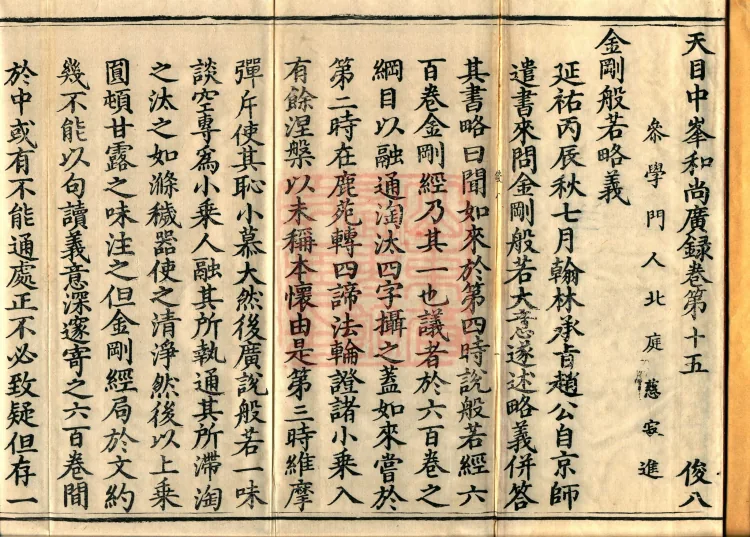 天目中峯和尚廣録卷第十五 俊八
叅學門人北庭慈寂進
金剛般若略義
延祐丙辰秋七月翰林承旨趙公自京師
遣書來問金剛般若大意遂述略義併答
其書略曰聞如來於第四時說般若經六
百卷金剛經乃其一也議者於六百卷之
綱目以融通淘汰四字攝之蓋如來嘗於
第二時在鹿苑轉四諦法輪證諸小乘入
有餘涅槃以未稱本懷由是第三時維摩
彈斥使其恥小慕大然後廣說般若一味
談空專爲小乘人融其所執通其所滯淘
之汰之如滌穢器使之清淨然後以上乘
圓頓甘露之味注之但金剛經局於文約
幾不能以句讀義意深邃寄之六百卷間
於中或有不能通處正不必致疑但存一